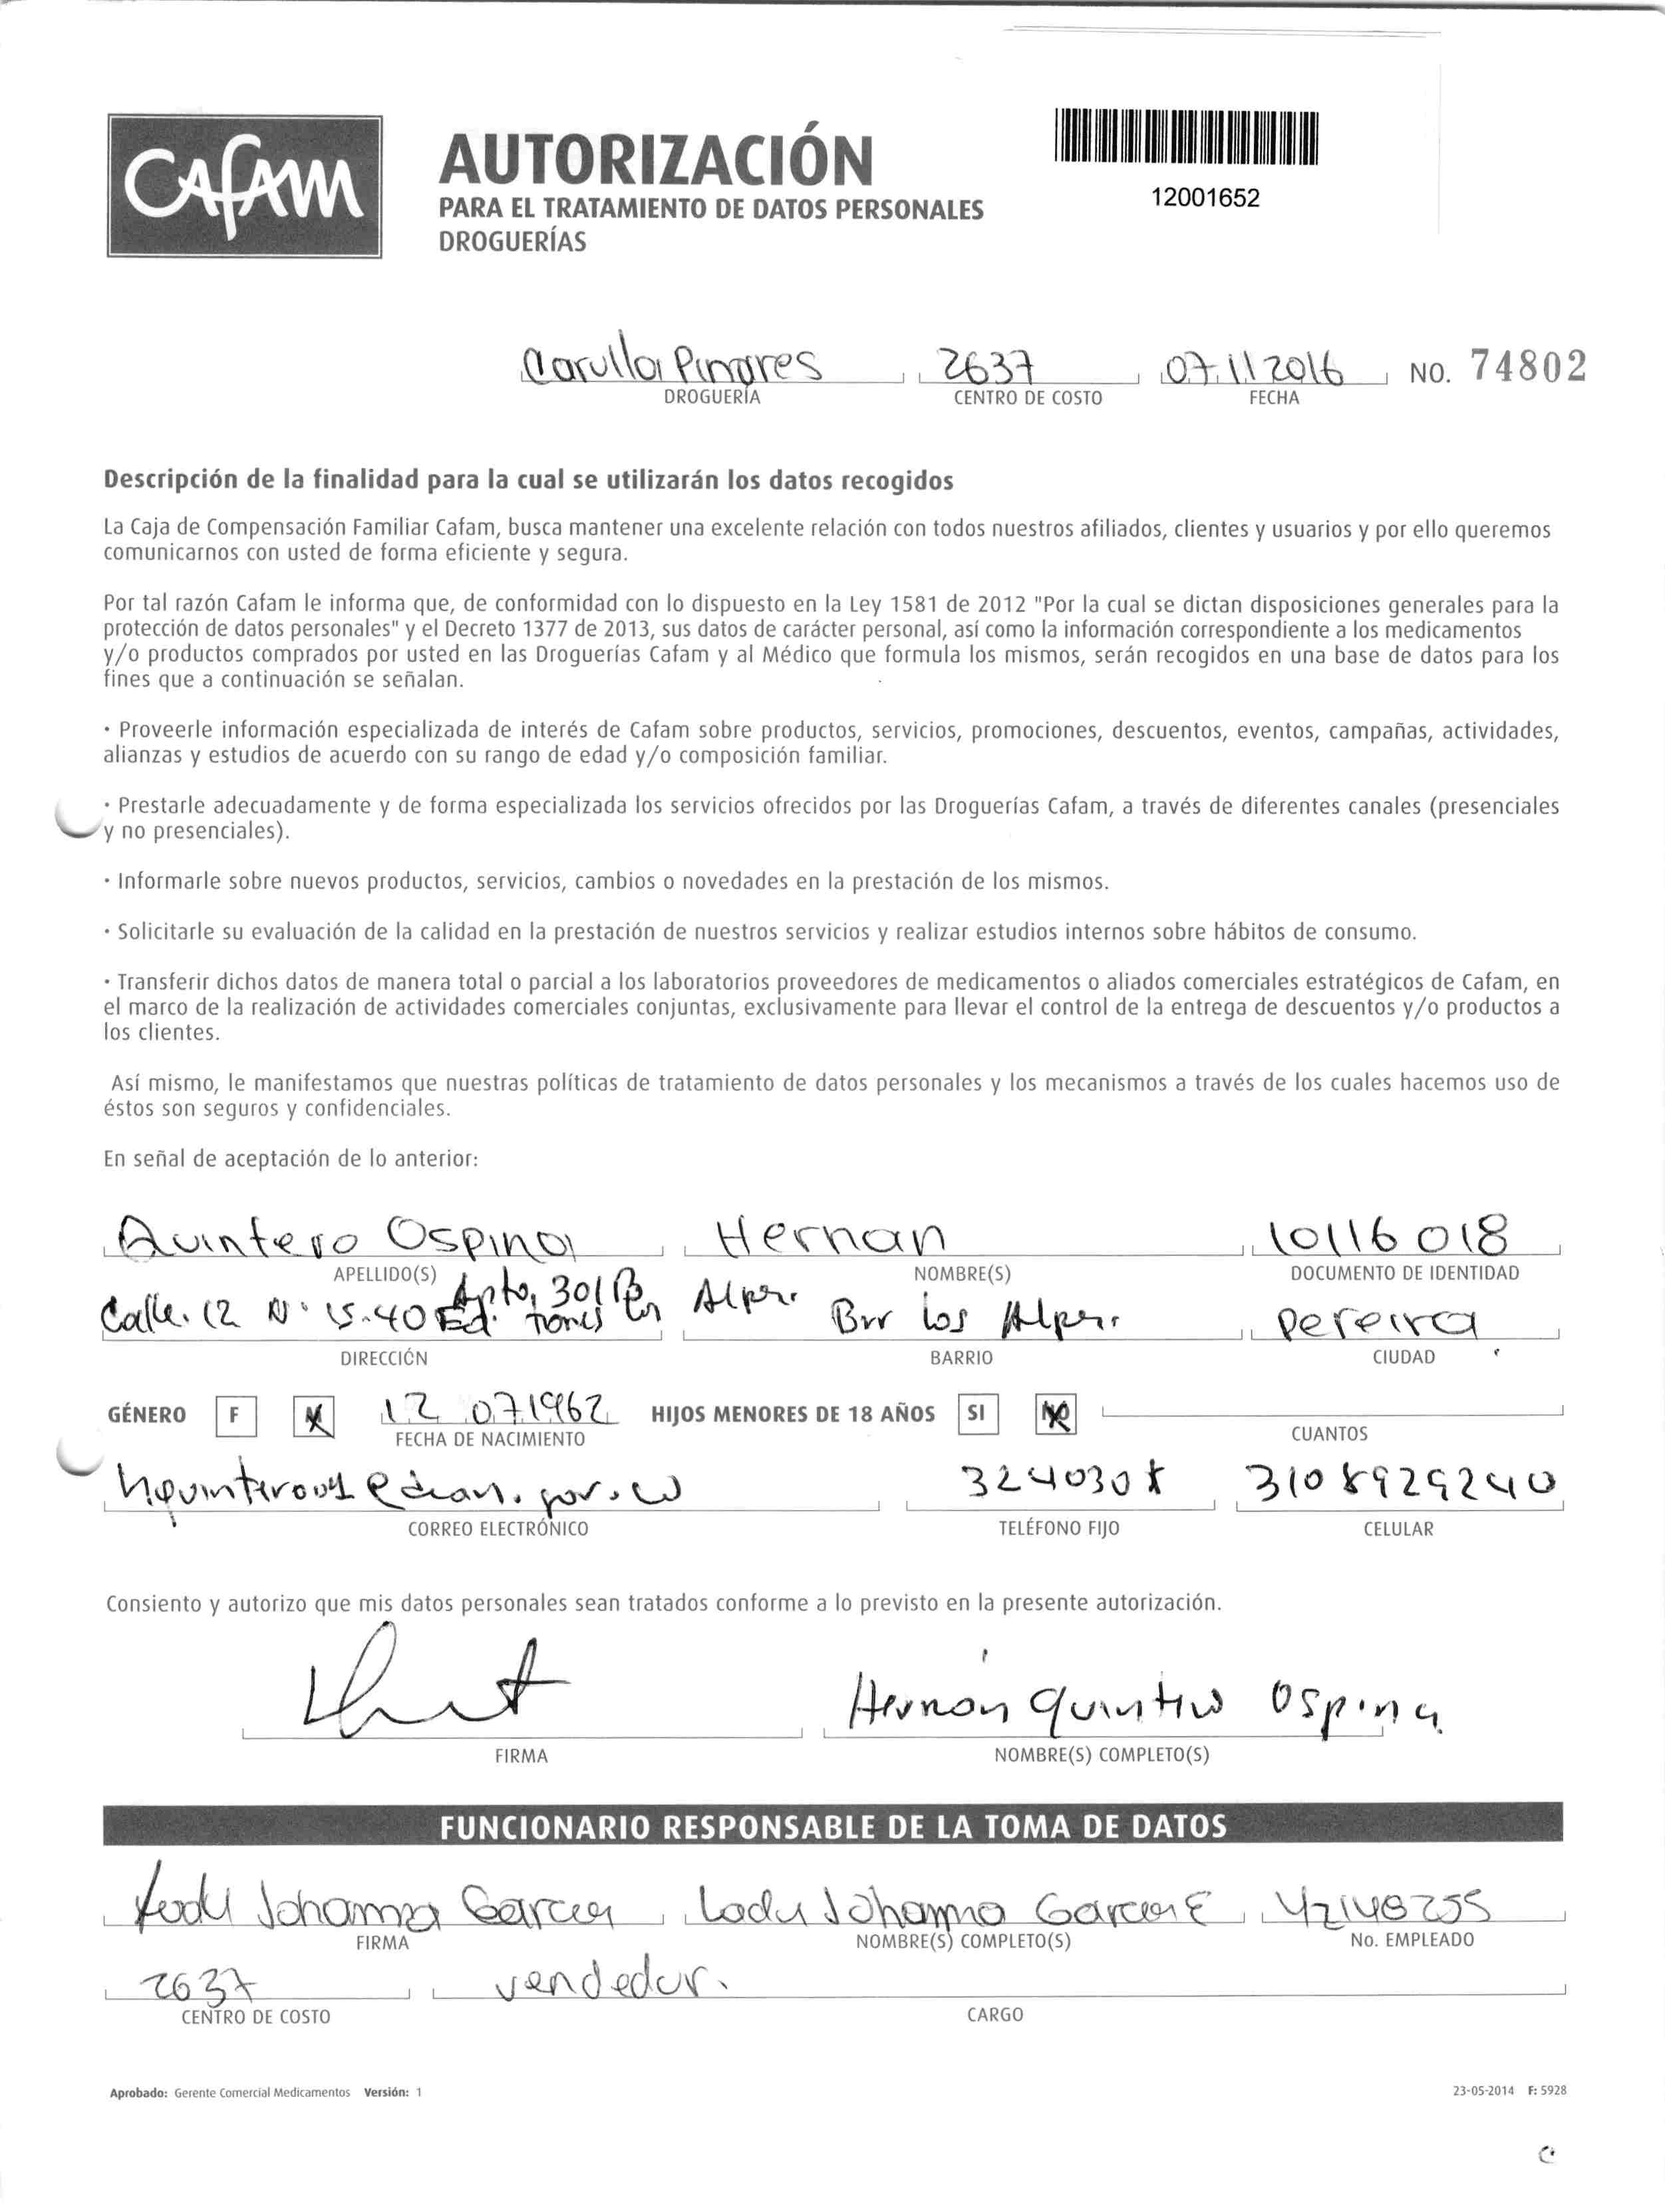 CAFAM
AUTORIZACIÓN
PARA EL TRATAMIENTO DE DATOS PERSONALES
DROGUERÍAS
12001652
Carulla Pinares 2637 07 11 2016 NO. 74802
DROGUERÍA CENTRO DE COSTO FECHA
Descripción de la finalidad para la cual se utilizarán los datos recogidos
La Caja de Compensación Familiar Cafam, busca mantener una excelente relación con todos nuestros afiliados, clientes y usuarios y por ello queremos
comunicarnos con usted de forma eficiente y segura.
Por tal razón Cafam le informa que, de conformidad con lo dispuesto en la Ley 1581 de 2012 "Por la cual se dictan disposiciones generales para la
protección de datos personales" y el Decreto 1377 de 2013, sus datos de carácter personal, así como la información correspondiente a los medicamentos
y/o productos comprados por usted en las Droguerías Cafam y al Médico que formula los mismos, serán recogidos en una base de datos para los
fines que a continuación se señalan.
· Proveerle información especializada de interés de Cafam sobre productos, servicios, promociones, descuentos, eventos, campañas, actividades,
alianzas y estudios de acuerdo con su rango de edad y/o composición familiar.
· Prestarle adecuadamente y de forma especializada los servicios ofrecidos por las Droguerías Cafam, a través de diferentes canales (presenciales
y no presenciales).
· Informarle sobre nuevos productos, servicios, cambios o novedades en la prestación de los mismos.
· Solicitarle su evaluación de la calidad en la prestación de nuestros servicios y realizar estudios internos sobre hábitos de consumo.
· Transferir dichos datos de manera total o parcial a los laboratorios proveedores de medicamentos o aliados comerciales estratégicos de Cafam, en
el marco de la realización de actividades comerciales conjuntas, exclusivamente para llevar el control de la entrega de descuentos y/o productos a
los clientes.
Así mismo, le manifestamos que nuestras políticas de tratamiento de datos personales y los mecanismos a través de los cuales hacemos uso de
éstos son seguros y confidenciales.
En señal de aceptación de lo anterior:
Quintero Ospina Hernan 10116018
APELLIDO(S) NOMBRE(S) DOCUMENTO DE IDENTIDAD
Apto, 301 B
Calle. 12 N° 15-40 Ed. Brr los Pereira
DIRECCIÓN BARRIO CIUDAD
GÉNERO F M 12 07 1962 HIJOS MENORES DE 18 AÑOS SI NO
FECHA DE NACIMIENTO CUANTOS
3240308 3108929240
CORREO ELECTRÓNICO TELÉFONO FIJO CELULAR
Consiento y autorizo que mis datos personales sean tratados conforme a lo previsto en la presente autorización.
Hernán Quintero Ospina
FIRMA NOMBRE(S) COMPLETO(S)
FUNCIONARIO RESPONSABLE DE LA TOMA DE DATOS
Johanna Garcia Lady Johanna Garcia E 42148255
FIRMA NOMBRE(S) COMPLETO(S) No. EMPLEADO
2637 vendedor.
CENTRO DE COSTO CARGO
Aprobado: Gerente Comercial Medicamentos Versión: 1 23-05-2014 F: 5928